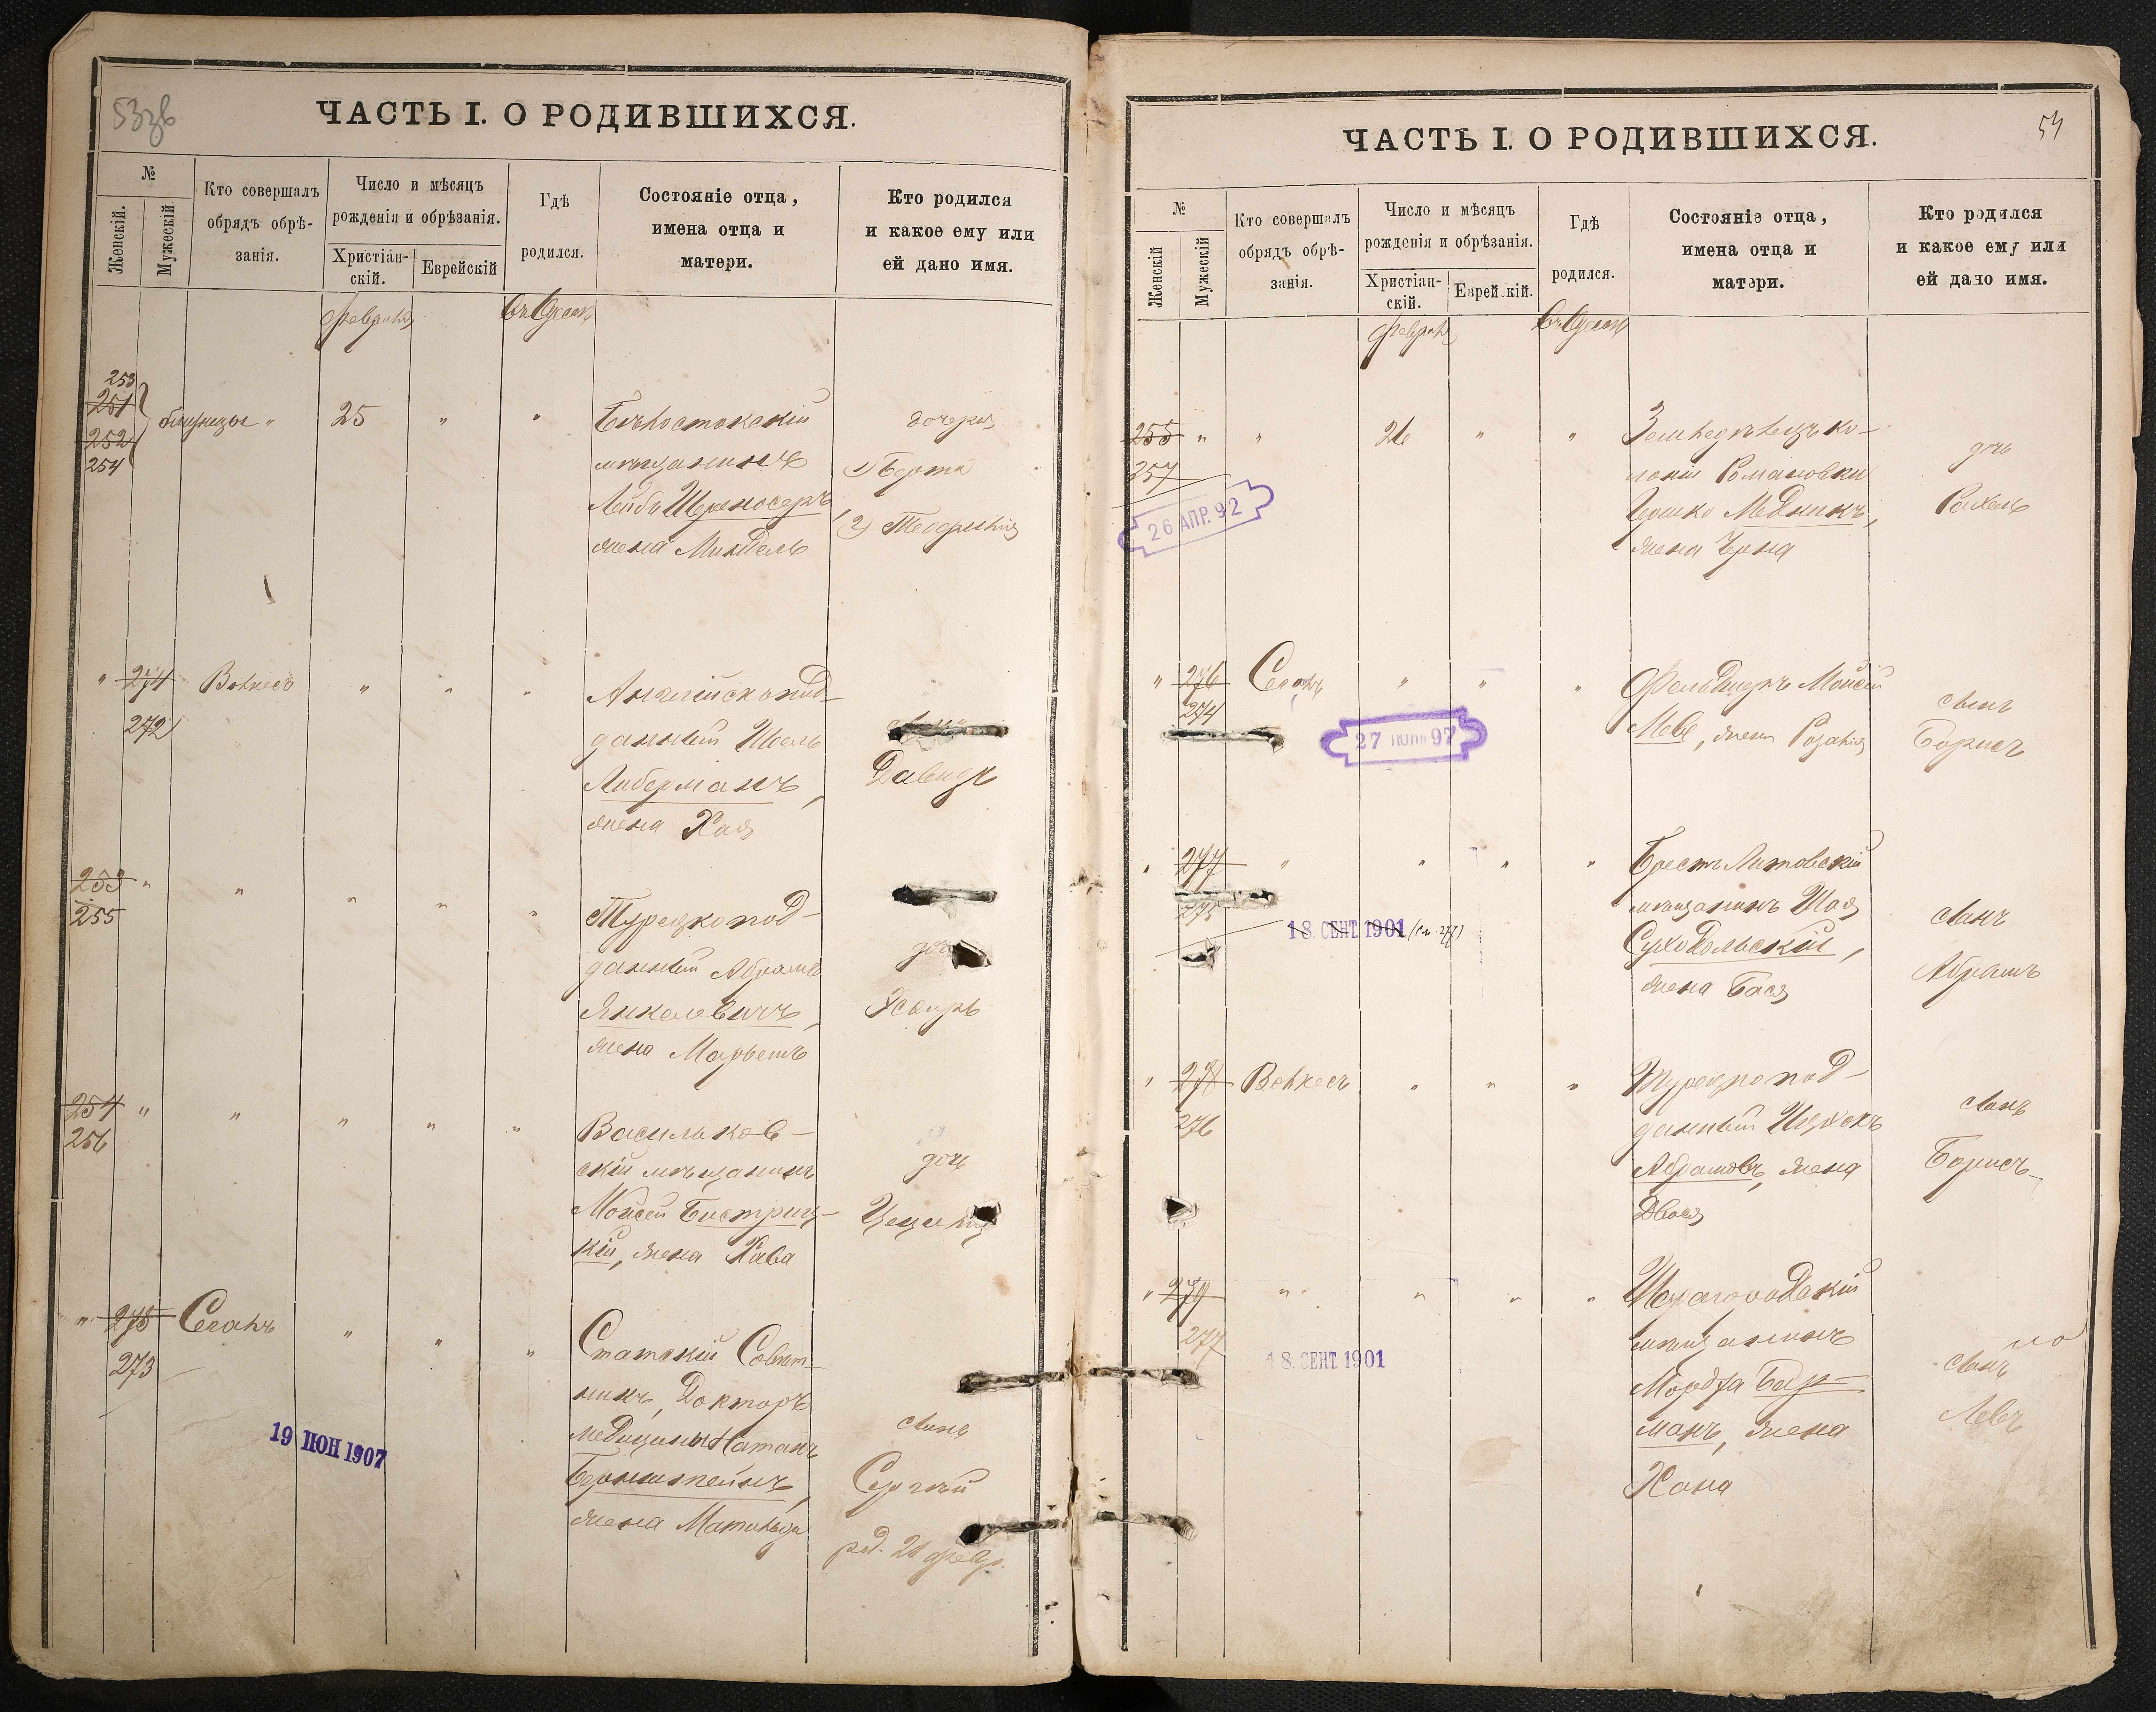 53зв
ЧАСТЬ I. О РОДИВШИХСЯ.
№
Женскій.
Мужескій
Кто совершалъ
обрядъ обрѣ-
занія.
Число и мѣсяцъ
рожденія и обрѣзанія.
Христіан-
скій.
Еврейскій
Гдѣ
родился.
Состояніе отца,
имена отца и
матери.
Кто родился
и какое ему или
ей дано имя.
Февраля
въ Одессѣ
253
251
252
254
близнецы " 25 " "
Бѣлостокскій
мѣщанинъ
Лейба
жена Миндель
дочери
1) Берта
2)
" 274
272
" " "
Англійскопод-
данный Шоель
Либерманъ,
жена Хая
Давидъ
253 "
255
" " " "
Турецкопод-
данный Абрамъ
Янкелевичъ,
жена
дочь
Эсѳирь
254 "
256
" " " "
Васильков-
скій мѣщанинъ
Мойсей Быстриц-
кій, жена Хава
дочь
Цецилія
" 275
273
Сегалъ " " "
Статскій Совѣт-
никъ, Докторъ
медицины Натанъ
Бернштейнъ,
жена Матильда
сынъ
Сергѣй
род. 21 февр.
19 ІЮН 1907
54
ЧАСТЬ I. О РОДИВШИХСЯ.
№
Женскій
Мужескій
Кто совершалъ
обрядъ обрѣ-
занія.
Число и мѣсяцъ
рожденія и обрѣзанія.
Христіан-
скій.
Еврейскій.
Гдѣ
родился.
Состояніе отца,
имена отца и
матери.
Кто родился
и какое ему или
ей дано имя.
Февраля
въ Одессѣ
255 " " 26 " "
257
26 АПР. 92
Земледѣлецъ ко-
лоніи Романовки
Іошко Медникъ,
жена Черна
дочь
Рахель
" 276
274
Сегалъ " " "
27 ІЮНЬ 97
Фельдшеръ Мойсей
Меве, жена Розалія
сынъ
Борисъ
" 277
275
" " " "
18. СЕНТ 1901 (см. 277)
Брестъ Литовскій
мѣщанинъ Шая
Суходольскій,
жена Бася
сынъ
Абрамъ
" 278
276
" " "
Турецкопод-
данный Ицхокъ
Абрамовъ, жена
Двося
сынъ
Борисъ
" 279
277
" " " "
18. СЕНТ 1901
Шаргородскій
мѣщанинъ
Мордха
манъ, жена
Хана
сынъ
Левъ